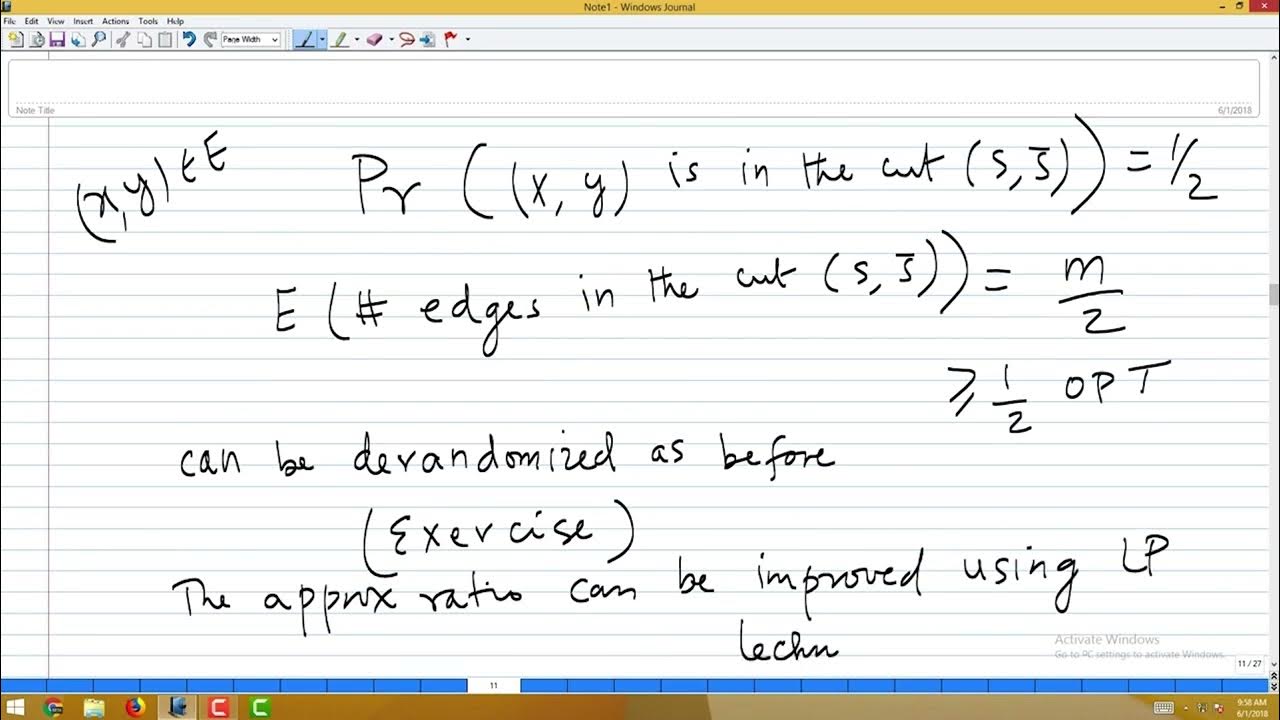 Note1 - Windows Journal
File Edit View Insert Actions Tools Help
Page Width
Note Title
6/1/2018
(x,y) ∈ E Pr ((x, y) is in the cut (S, S̄)) = 1/2
E (# edges in the cut (S, S̄)) = m/2
⩾ 1/2 OPT
can be derandomized as before
(Exercise)
The approx ratio can be improved using LP
techn
Activate Windows
Go to PC settings to activate Windows.
11 / 27
11
9:58 AM
6/1/2018